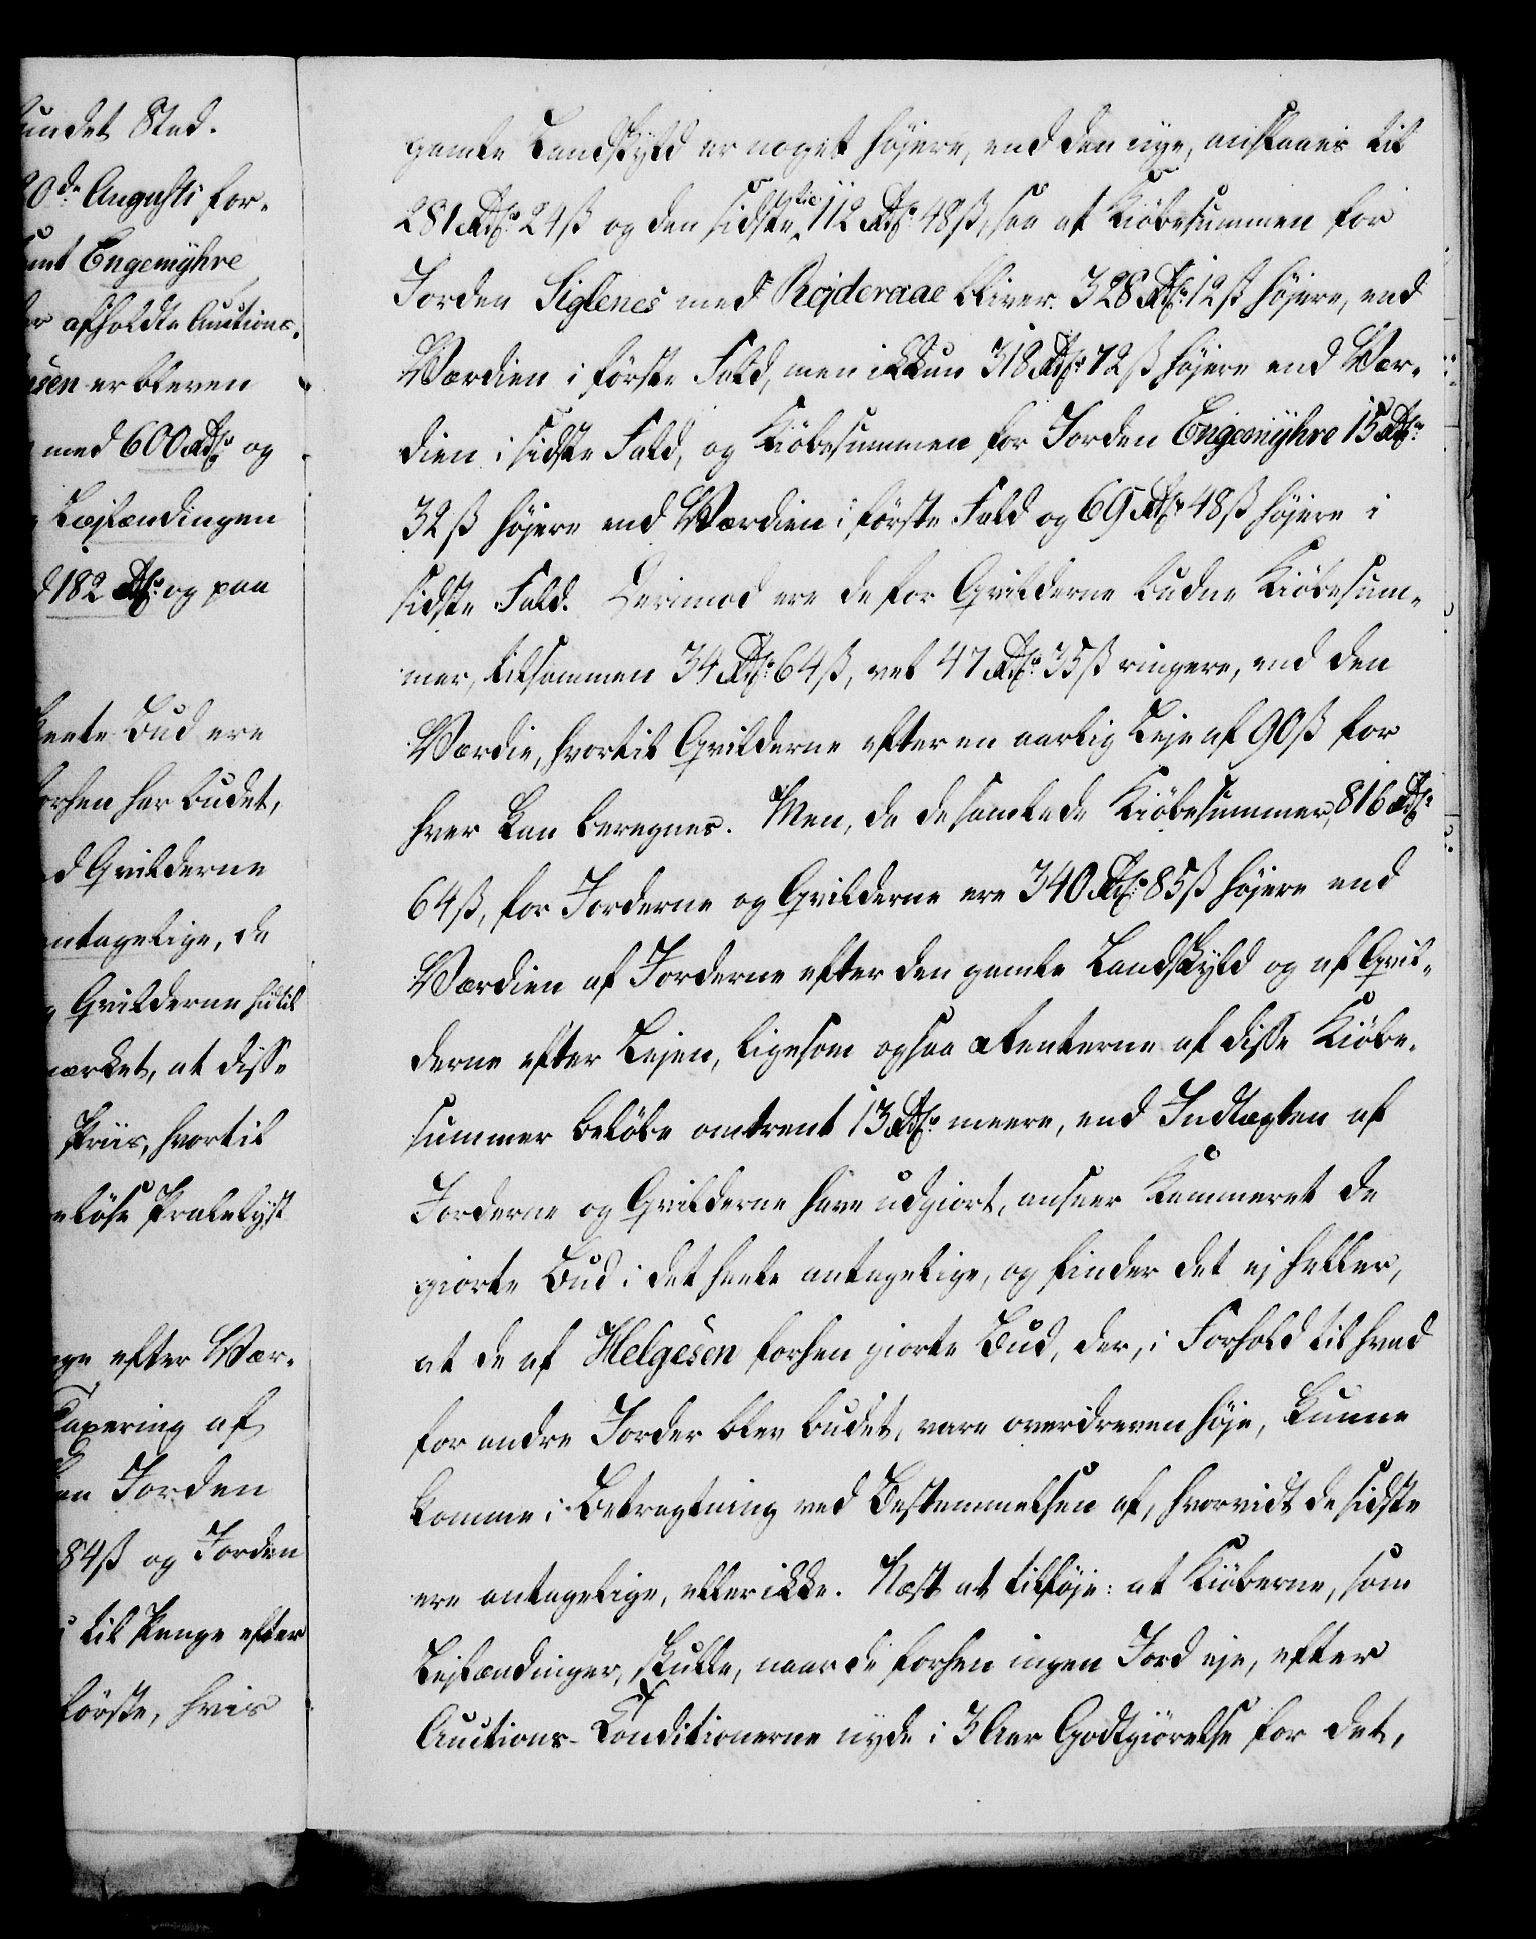 undet Sted.
20de Augusti for-
samt Engemyhre
er afholdte Auctions-
sen er bleven
med 600 Rdr. og
Lejlændingen
182 Rdr. og paa
heele Bud ere
forhen har budet,
d Qvilderne
antagelige, da
Qvilderne hidtil
mærket, at disse
Priis, hvortil
eløse Pralelyst
efter Vær-
Taxering af
Jorden
84 ß og Jorden
til Penge efter
første, hvis
gamle Landskyld er noget højere, end den nye, anslaaes til
281 Rdr. 24 ß og den sidste til 112 Rdr. 48 ß, saa at Kiöbesummen for
Jorden Siglenes med Röjderaae bliver 328 Rdr. 12 ß højere, end
Værdien i förste Fald, men ikkun 318 Rdr. 72 ß højere end Vær-
dien i sidste Fald, og Kiöbesummen for Jorden Engemyhre 15 Rdr.
32 ß højere end Værdien i förste Fald og 69 Rdr. 48 ß højere i
sidste Fald. Derimod ere de for Qvilderne budne Kiöbesum-
mer, tilsammen 34 Rdr. 64 ß, vel 47 Rdr. 35 ß ringere, end den
Værdie, hvortil Qvilderne efter en aarlig Leje af 90 ß for
hver kan beregnes. Men, da de samlede Kiöbesummer, 816 Rdr.
64 ß, for Jorderne og Qvilderne ere 340 Rdr. 85 ß højere end
Værdien af Jorderne efter den gamle Landskyld og af Qvil-
derne efter Lejen, ligesom ogsaa Renterne af disse Kiöbe-
summer belöbe omtrent 13 Rdr. meere, end Indtægten af
Jorderne og Qvilderne have udgiort, anseer Kammeret de
giorte Bud i det heele antagelige, og finder det ej heller,
at de af Helgesen forhen giorte Bud, der, i Forhold til hvad
for andre Jorder blev budet, vare overdreven höje, kunne
komme i Betragtning ved Bestemmelsen af, hvorvidt de sidste
ere antagelige, eller ikke. Næst at tilföje: at Kiöberne, som
Lejlændinger, skulle, naar de forhen ingen Jord eje, efter
Auctions-Conditionerne nyde i 3 Aar Godtgiörelse for det,